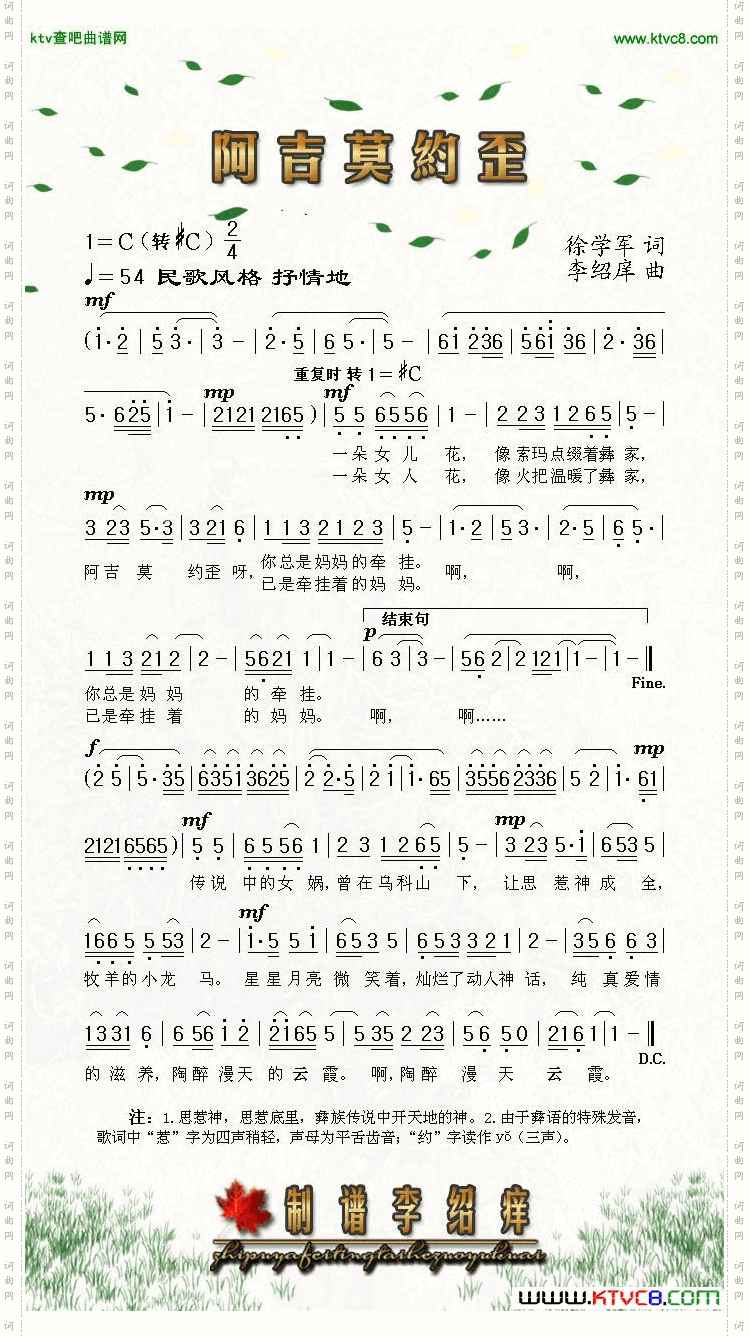 ktv查吧曲谱网 www.ktvc8.com
阿吉莫約歪
1=C(转#C) 2/4
♩=54 民歌风格 抒情地
徐学军 词
李绍庠 曲
mf
(1·2|5 3·|3 -|2·5|6 5·|5 -|61 236|561 36|2·36|
重复时 转 1=#C
mp mf
5·625|1 -|2121 2165)|5 5 6556|1 -|2 23 1265|5 -|
一朵女儿 花, 像索玛点缀着彝 家,
一朵女人 花, 像火把温暖了彝 家,
mp
3 23 5·3|321 6|1 13 2123|5 -|1·2|53·|2·5|65·|
阿吉 莫 约歪 呀, 你总是妈妈的牵 挂。 啊, 啊,
已是牵挂着的妈妈。
结束句
p
1 13 212|2 -|5621 1|1 -|6 3|3 -|56 2|2 121|1 -|1 -‖
Fine.
你总是 妈 妈 的 牵 挂。
已是牵 挂 着 的 妈妈。 啊, 啊……
f mp
(2 5|5·35|63513625|2 2·5|2 1|1·65|3556 2336|5 2|1·61|
mf mp
21216565)|5 5|6 556 1|2 3 1265|5 -|3 23 5·1|653 5|
传说 中的女 娲,曾在乌科山 下, 让思 惹神成 全,
mf
1665 5 53|2 -|1·5 5 1|653 5|653 321|2 -|35 6 63|
牧羊的小龙 马。 星星月亮 微 笑着,灿烂了动人神 话, 纯 真爱情
1331 6|6 56 1 2|2165 5|535 2 23|56 50|216 1|1 -‖
D.C.
的 滋 养,陶醉 漫天 的 云 霞。啊,陶醉 漫 天 云 霞。
注: 1.思惹神,思惹底里,彝族传说中开天地的神。2.由于彝语的特殊发音,
歌词中“惹”字为四声稍轻,声母为平舌齿音;“约”字读作yǒ(三声)。
制谱李绍痒
www.KTVC8.com